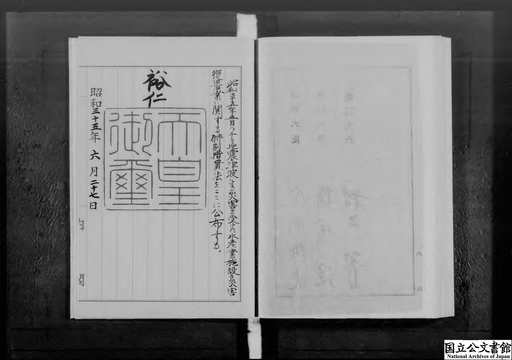 昭和三十五年五月のチリ地震津波による災害を受けた水産業施設の災害
復旧事業に関する特別措置法をここに公布する。
裕仁
天皇
御璽
昭和三十五年六月二十七日
内閣
国立公文書館
National Archives of Japan